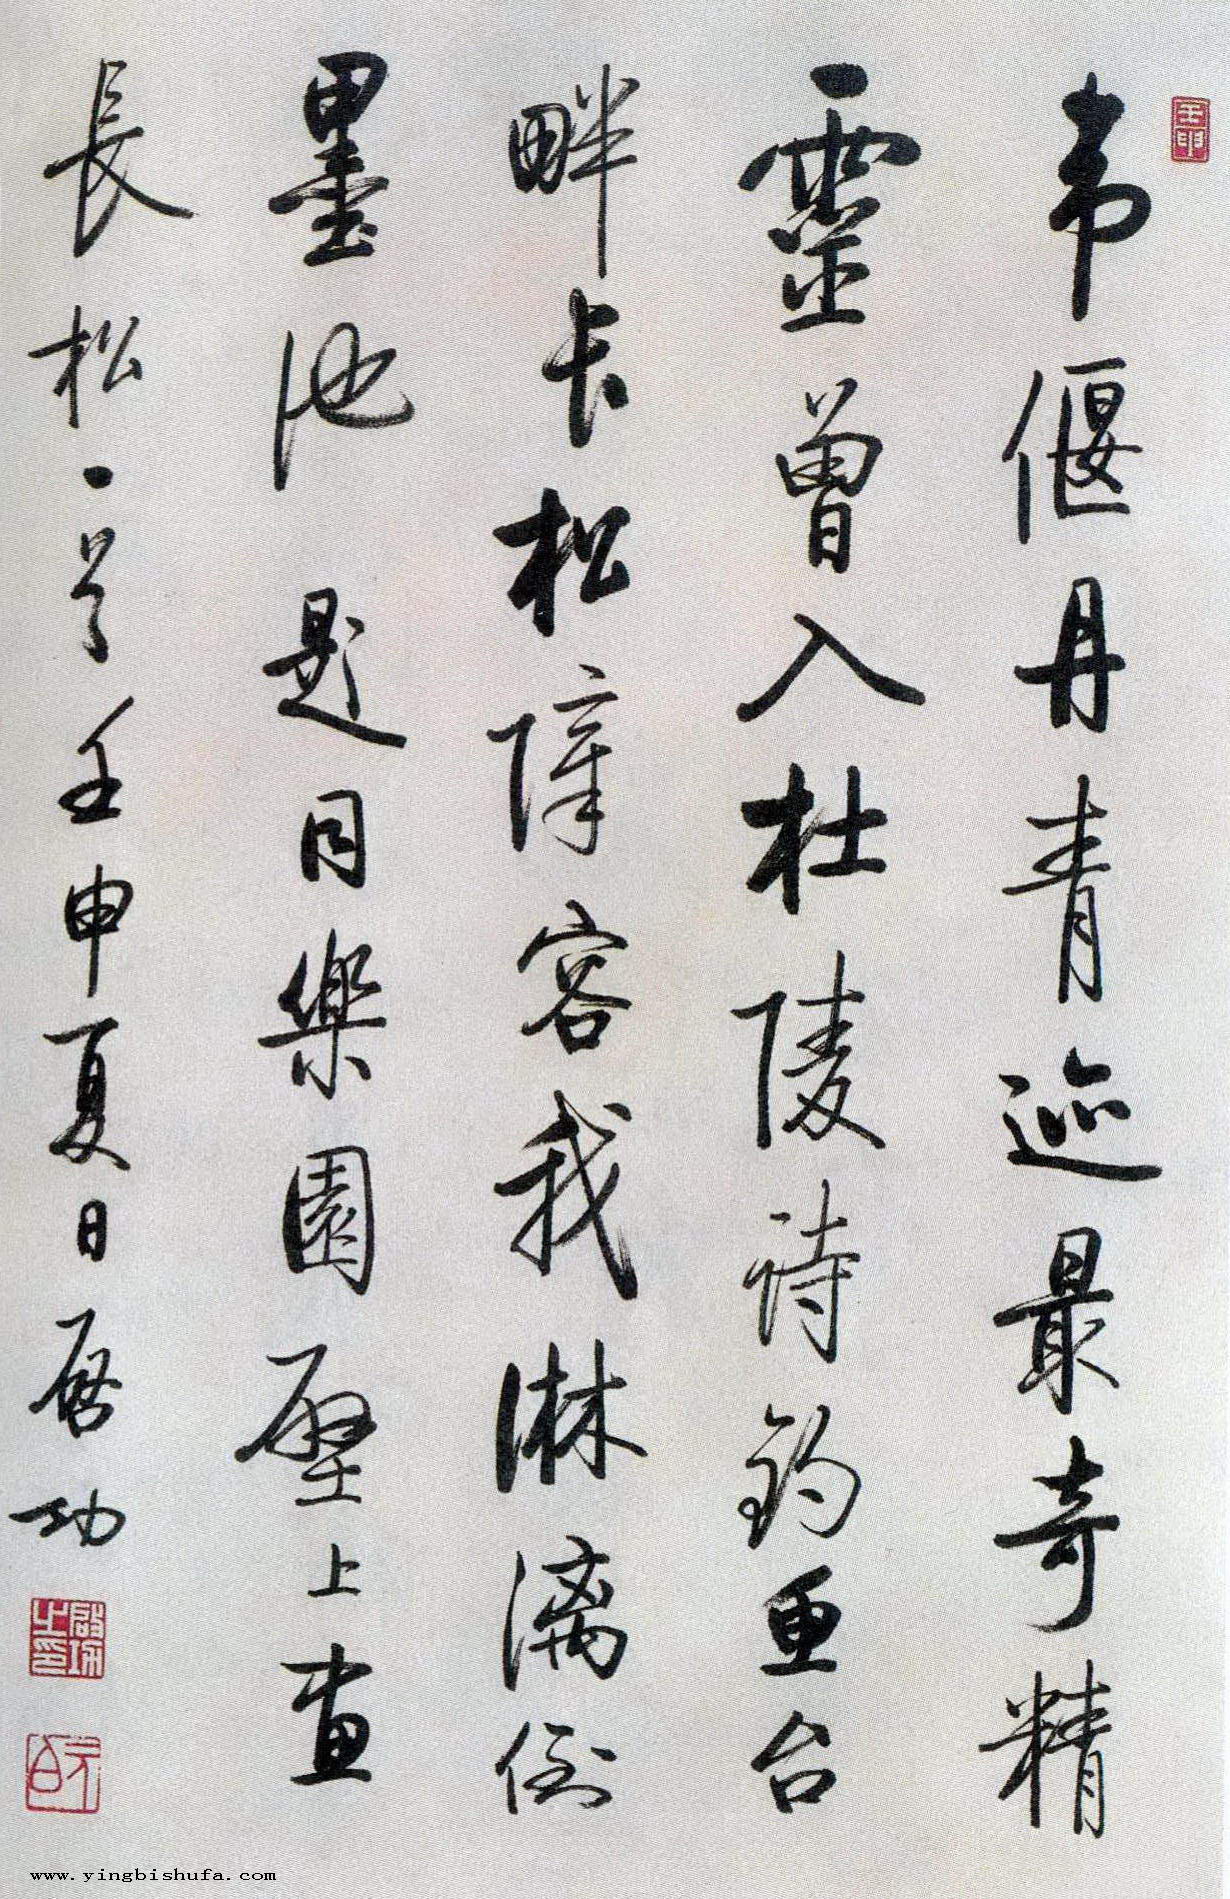 壬申
韋偃丹青迹最奇精
靈曾入杜陵詩釣魚台
畔长松障容我淋漓倒
墨池 題同樂園壁上畫
長松一首壬申夏日啓功
啓功之印
元白
www.yingbishufa.com